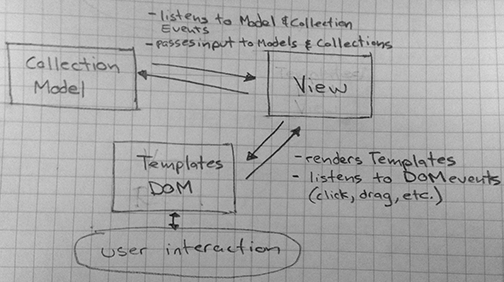 - listens to Model & Collection
Events
- passes input to Models & Collections
Collection
Model
View
Templates
DOM
- renders Templates
- listens to DOM events
(click, drag, etc.)
user interaction